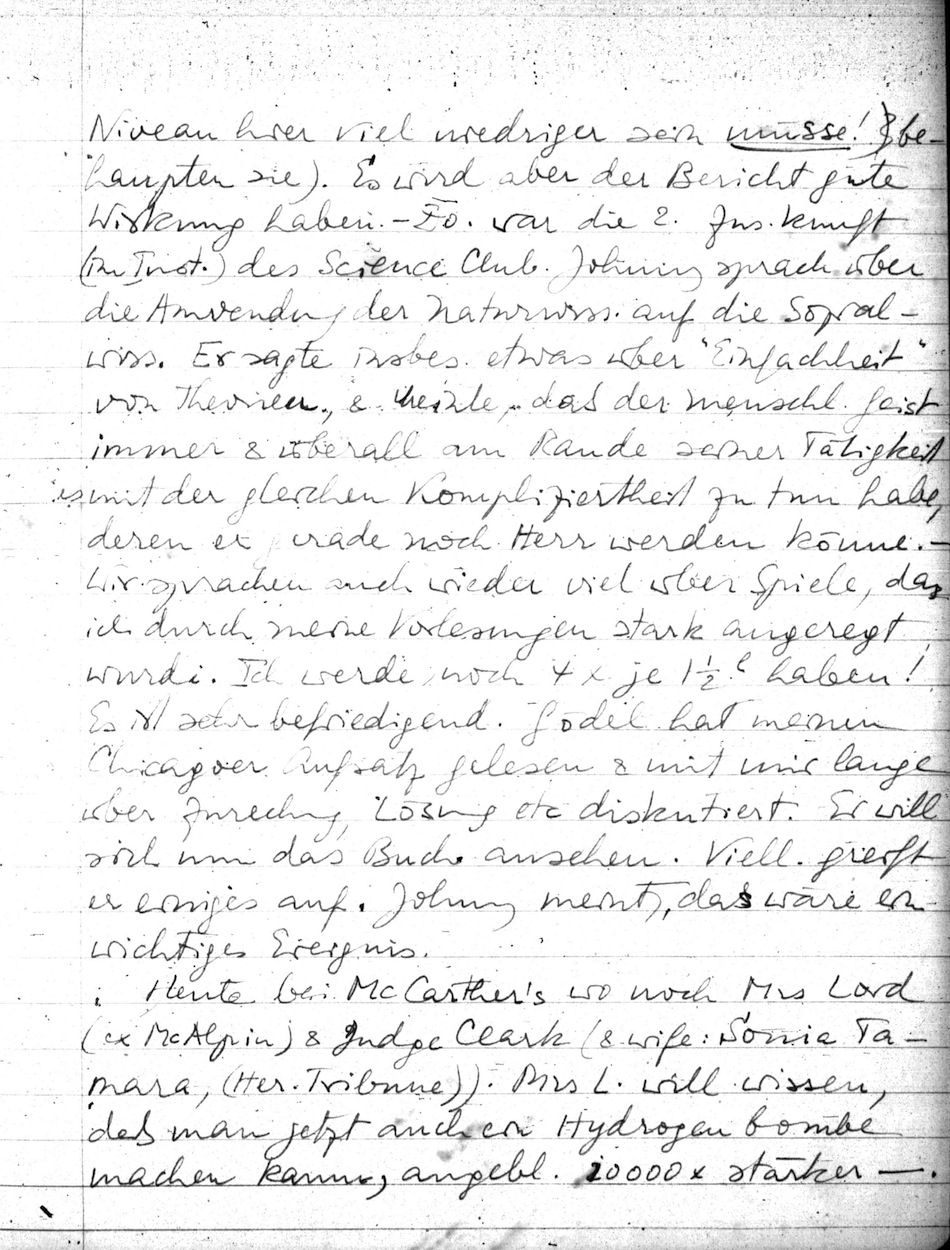 Niveau hier viel niedriger sein müsse! be-
haupten sie). Es wird aber der Bericht gute
Wirkung haben. – Fo. war die 2. Zus.kunft
(im Inst.) des Science Club. Johnny sprach über
die Anwendung der Naturwiss. auf die Sozial-
wiss. Er sagte insbes. etwas über "Einfachheit"
von Theorien, & meinte, daß der menschl. Geist
immer & überall am Rande seiner Tätigkeit
es mit der gleichen Kompliziertheit zu tun habe,
deren er gerade noch Herr werden könne. –
Wir sprachen auch wieder viel über Spiele, da
ich durch meine Vorlesungen stark angeregt
wurde. Ich werde noch 4 x je 1½ʰ haben!
Es ist sehr befriedigend. Gödel hat meinen
Chicagoer Aufsatz gelesen & mit mir lange
über Zurechng, Lösung etc diskutiert. Er will
sich nun das Buch ansehen. Viell. greift
er einiges auf. Johnny meint, das wäre ein
wichtiges Ereignis.
Heute bei McCarther's wo noch Mrs Lord
(ex McAlpin) & Judge Clark (& wife: Sonia Ta-
mara, (Her. Tribune)). Mrs L. will wissen,
daß man jetzt auch ein Hydrogen bombe
machen kann, angebl. 10000 x stärker —.